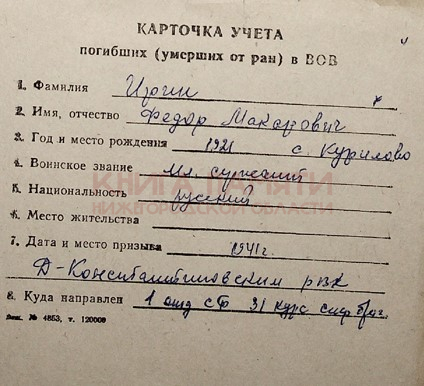 КАРТОЧКА УЧЕТА
погибших (умерших от ран) в ВОВ
1. Фамилия
2. Имя, отчество Федор Макарович
3. Год и место рождения 1921 с. Курилово
4. Воинское звание мл. сержант
КНИГА ПАМЯТИ
5. Национальность русский
НИЖЕГОРОДСКОЙ ОБЛАСТИ
6. Место жительства
7. Дата и место призыва 1941г.
Д-Константиновским рвк
8. Куда направлен 1 СФ 31
Зак. № 4853, т. 120000